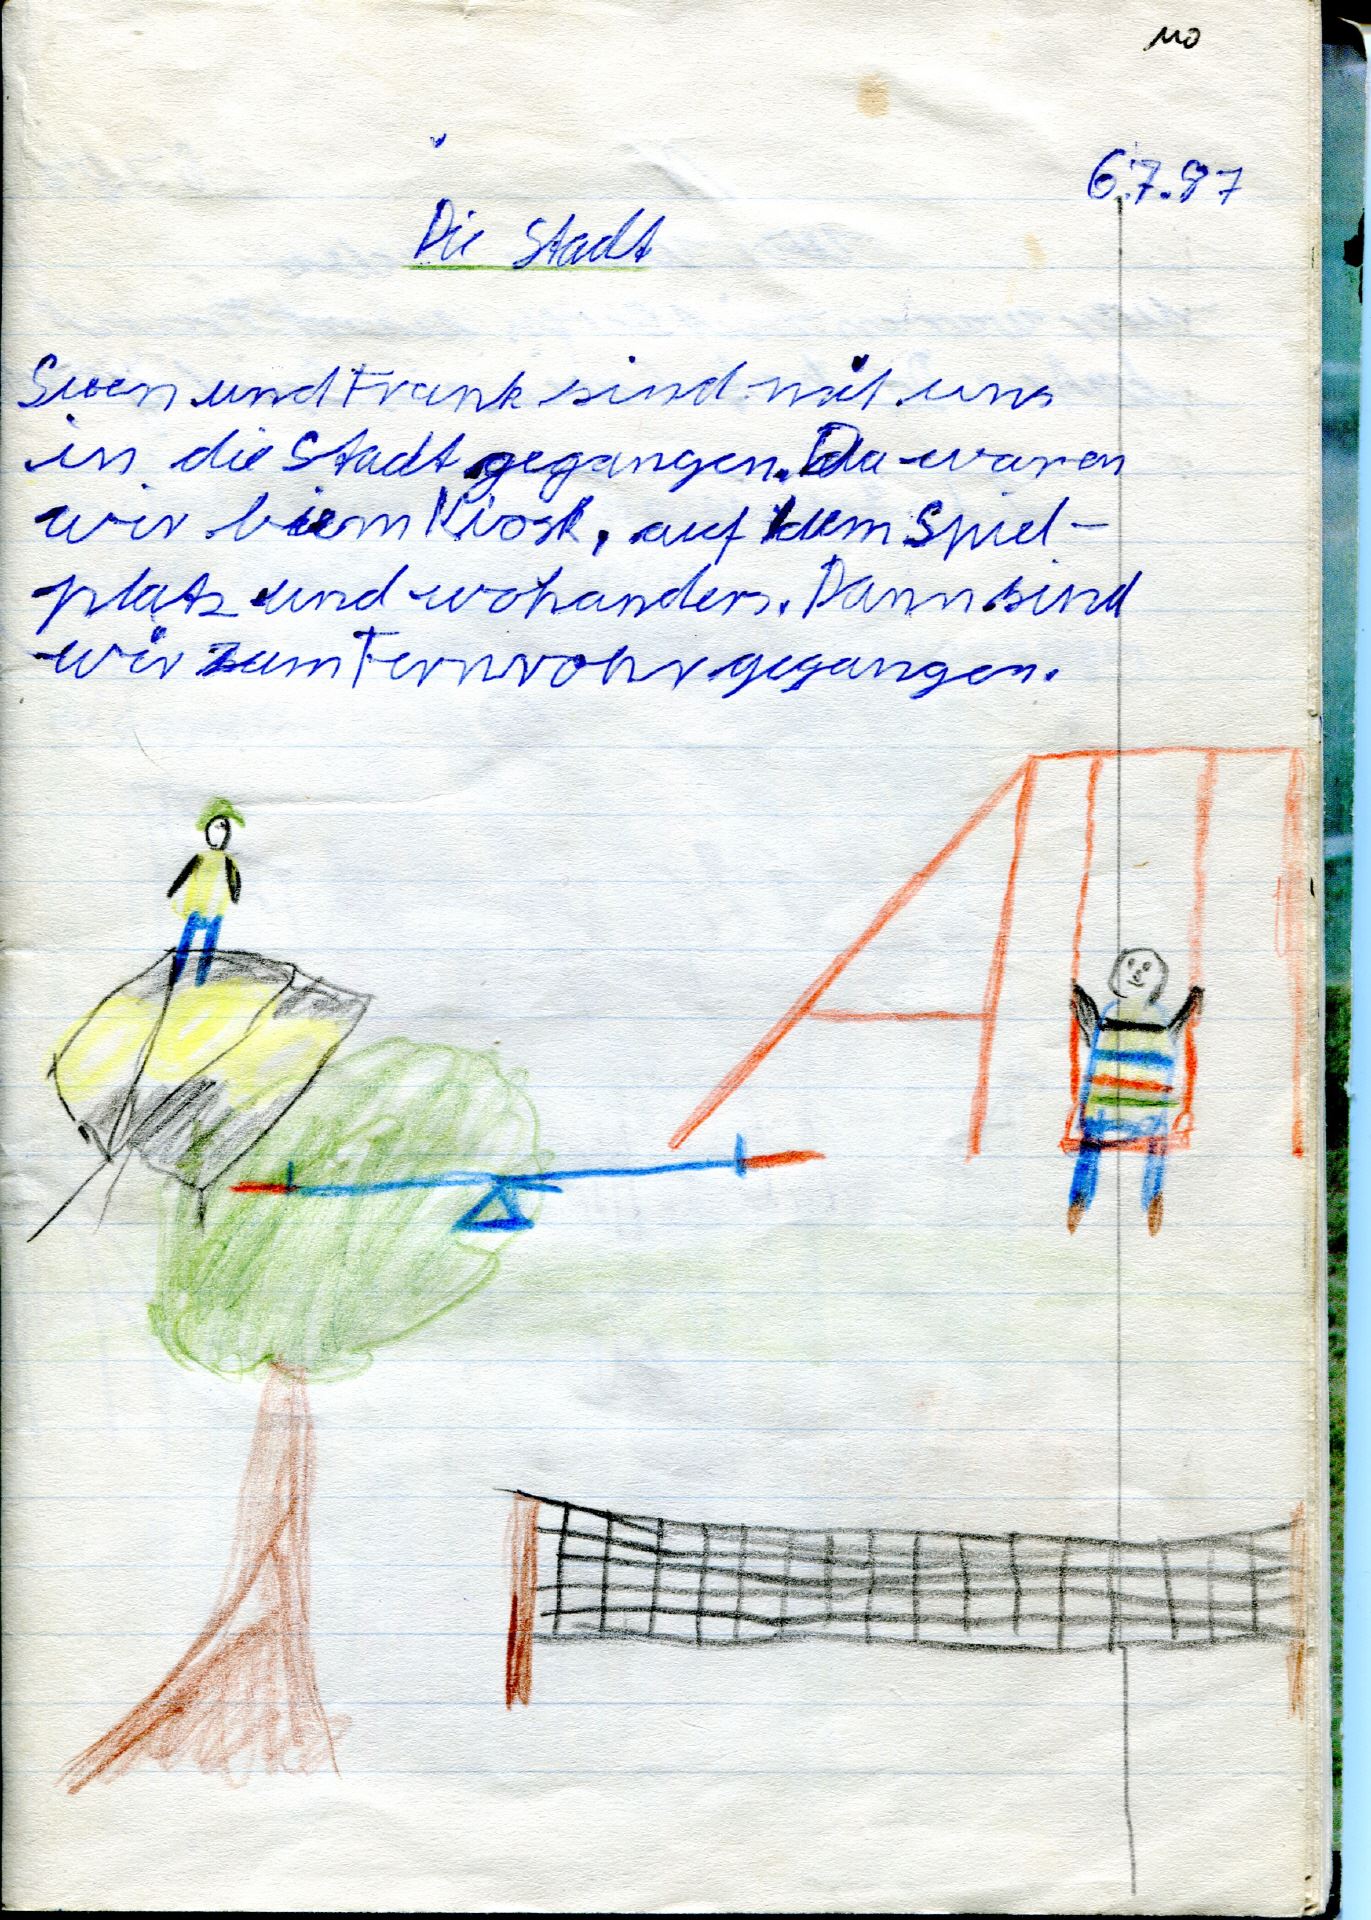 MO
6.7.87
Die Stadt
Sven und Frank sind mit uns
in die Stadt gegangen. Da waren
wir beim Kiosk, auf dem Spiel-
platz und wohanders. Dann sind
wir zum Fernrohr gegangen.